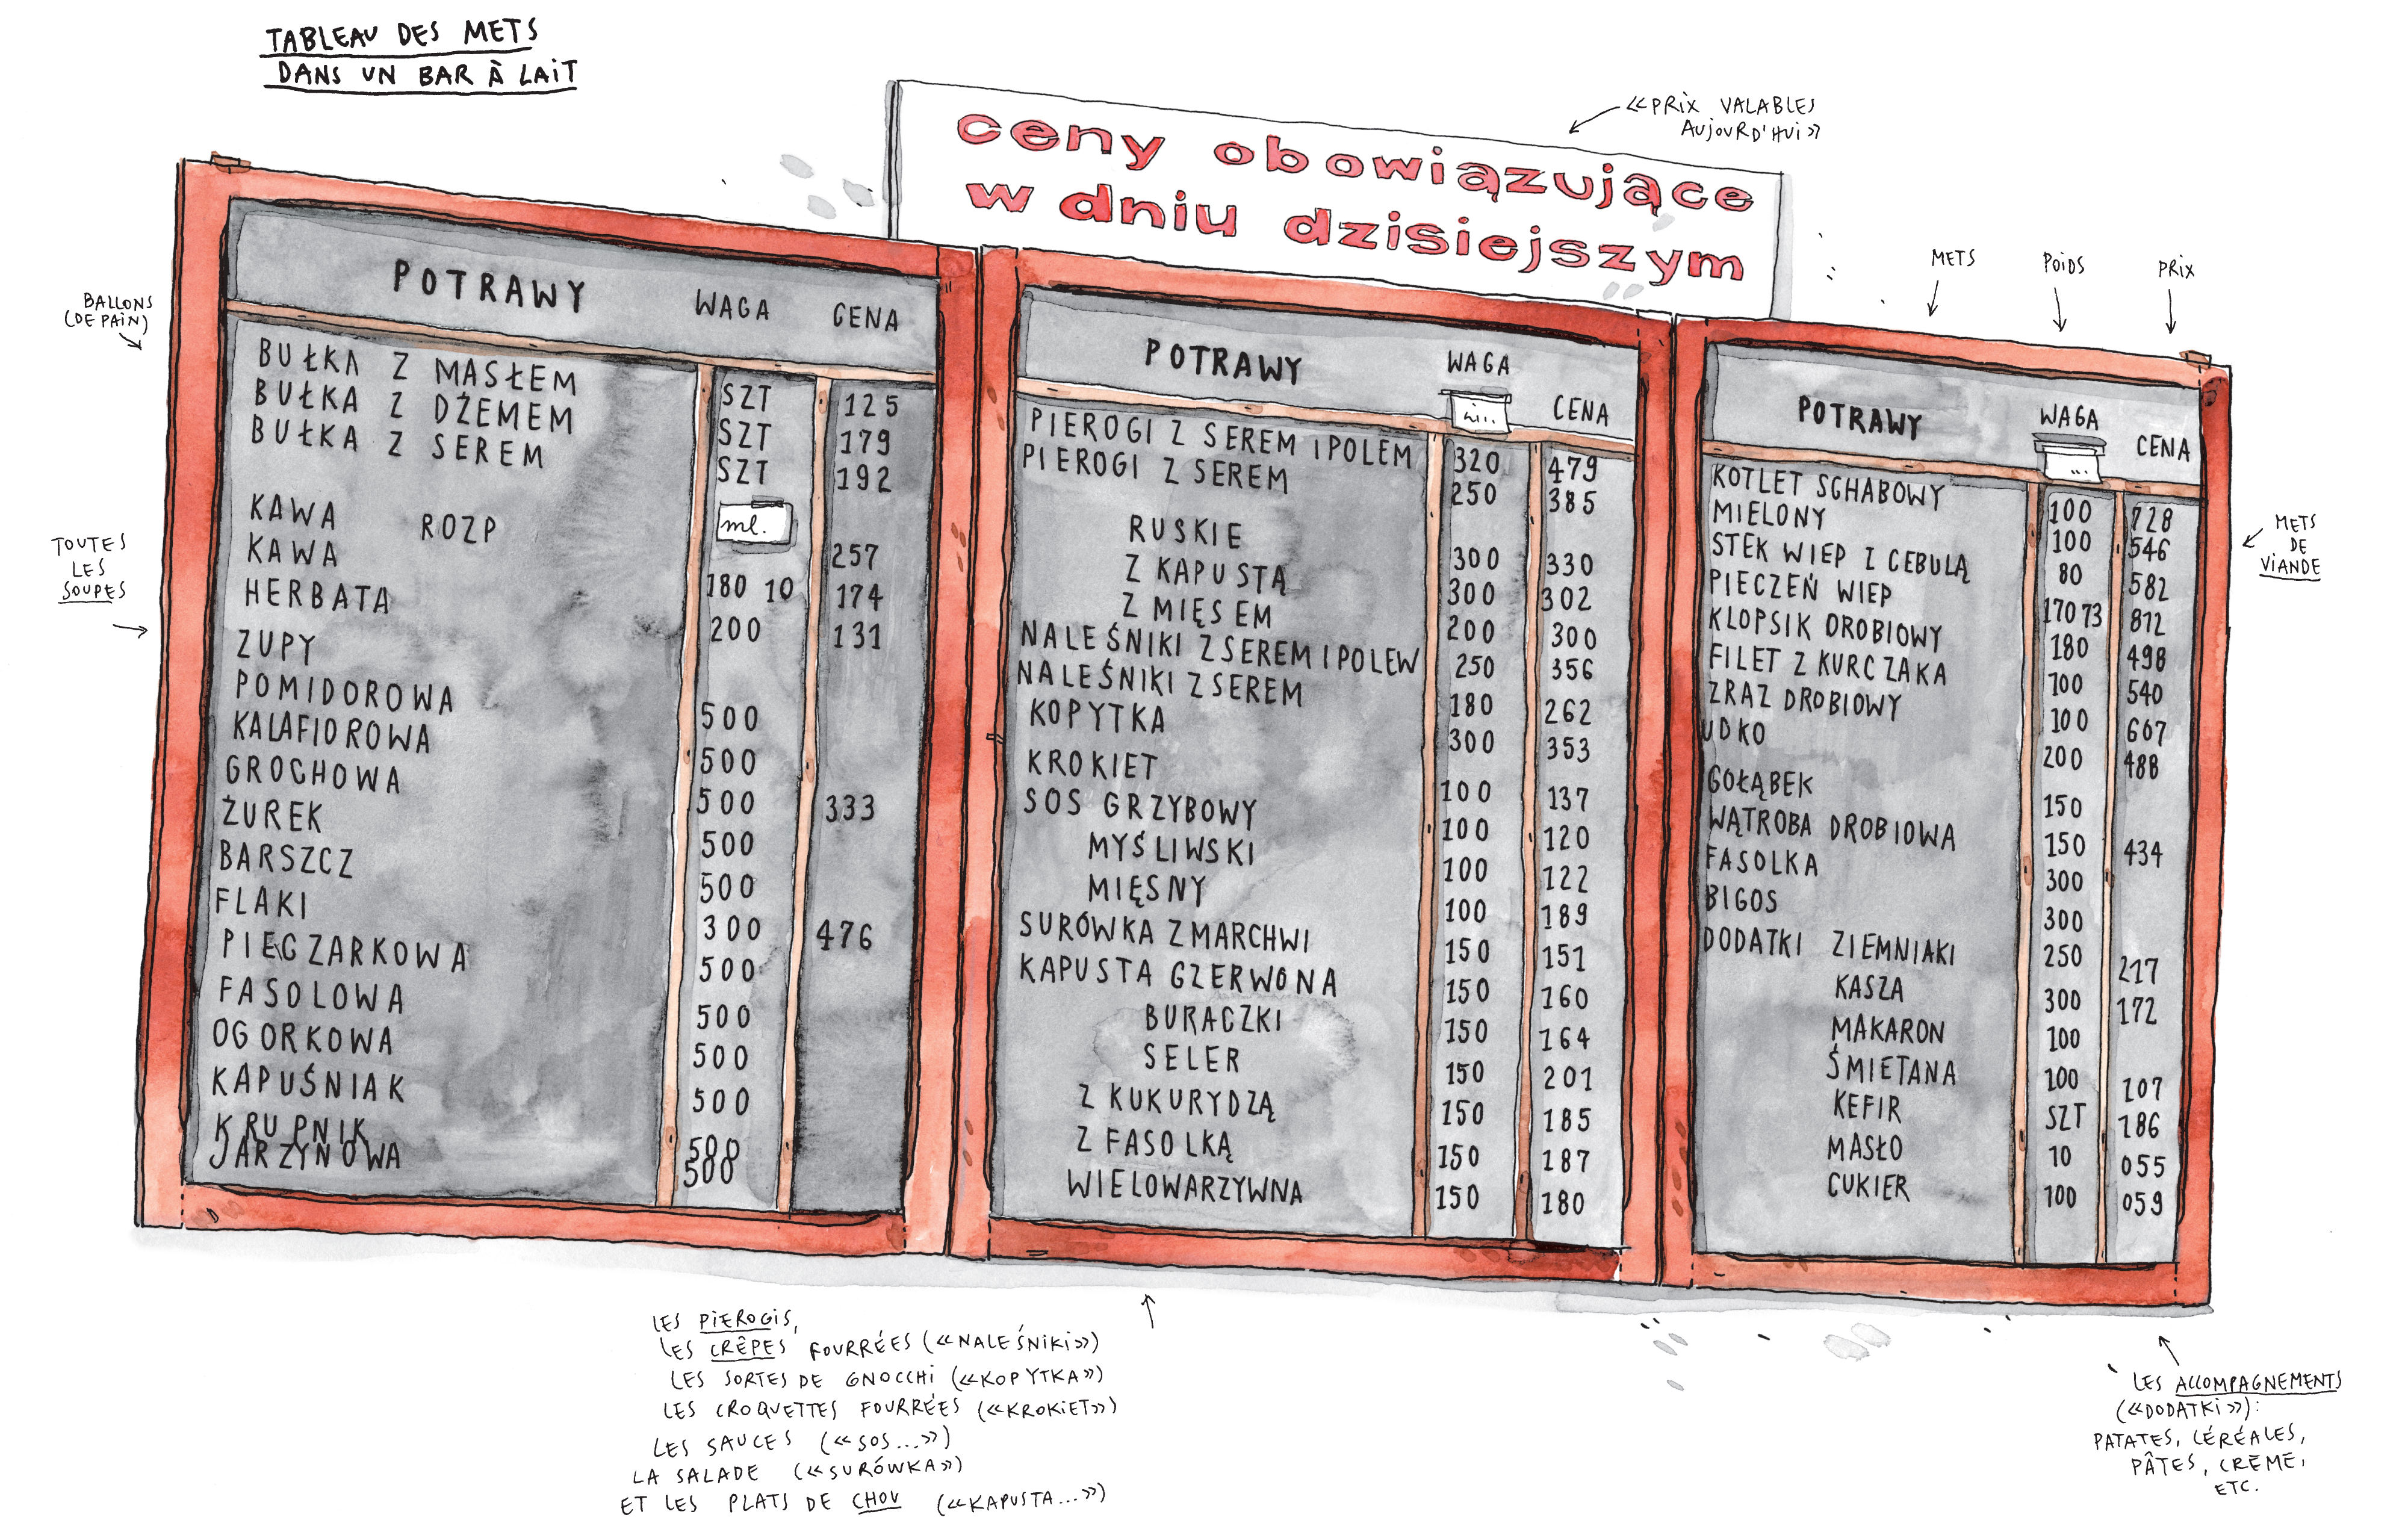 TABLEAU DES METS
DANS UN BAR À LAIT
ceny obowiązujące
w dniu dzisiejszym
«PRIX VALABLES
AUJOURD'HUI»
BALLONS
(DE PAIN)
TOUTES
LES
SOUPES
POTRAWY WAGA CENA
BUŁKA Z MASŁEM SZT 125
BUŁKA Z DŻEMEM SZT 179
BUŁKA Z SEREM SZT 192
KAWA ROZP ml. 257
KAWA 180 10 174
HERBATA 200 131
ZUPY
POMIDOROWA 500
KALAFIOROWA 500
GROCHOWA 500 333
ŻUREK 500
BARSZCZ 500
FLAKI 300 476
PIECZARKOWA 500
FASOLOWA 500
OGORKOWA 500
KAPUŚNIAK 500
KRUPNIK 500
JARZYNOWA 500
POTRAWY WAGA CENA
PIEROGI Z SEREM I POLEM 320 479
PIEROGI Z SEREM 250 385
RUSKIE 300 330
Z KAPUSTĄ 300 302
Z MIĘSEM 200 300
NALEŚNIKI Z SEREM I POLEW 250 356
NALEŚNIKI Z SEREM 180 262
KOPYTKA 300 353
KROKIET 100 137
SOS GRZYBOWY 100 120
MYŚLIWSKI 100 122
MIĘSNY 100 189
SURÓWKA Z MARCHWI 150 151
KAPUSTA CZERWONA 150 160
BURACZKI 150 164
SELER 150 201
Z KUKURYDZĄ 150 185
Z FASOLKĄ 150 187
WIELOWARZYWNA 150 180
METS POIDS PRIX
POTRAWY WAGA CENA
KOTLET SCHABOWY 100 728
MIELONY 100 546
STEK WIEP Z CEBULĄ 80 582
PIECZEŃ WIEP 170 73 812
KLOPSIK DROBIOWY 180 498
FILET Z KURCZAKA 100 540
ZRAZ DROBIOWY 100 607
UDKO 200 488
GOŁĄBEK 150
WĄTROBA DROBIOWA 150 434
FASOLKA 300
BIGOS 300
DODATKI ZIEMNIAKI 250 217
KASZA 300 172
MAKARON 100
ŚMIETANA 100 107
KEFIR SZT 186
MASŁO 10 055
CUKIER 100 059
METS
DE
VIANDE
LES PIEROGIS,
LES CRÊPES FOURRÉES («NALEŚNIKI»)
LES SORTES DE GNOCCHI («KOPYTKA»)
LES CROQUETTES FOURRÉES («KROKIET»)
LES SAUCES («SOS...»)
LA SALADE («SURÓWKA»)
ET LES PLATS DE CHOU («KAPUSTA...»)
LES ACCOMPAGNEMENTS
(«DODATKI»):
PATATES, CÉRÉALES,
PÂTES, CRÈME,
ETC.